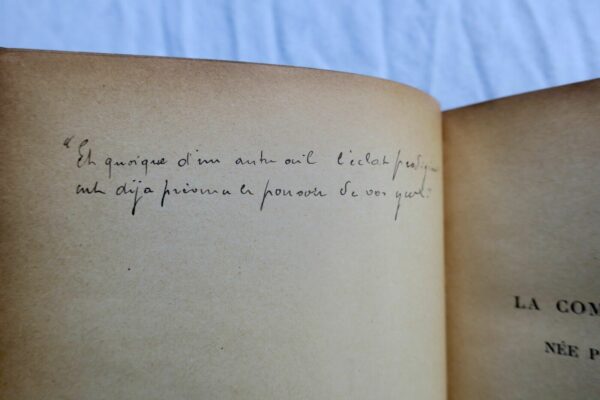 "Et quoique d'un autre œil l'éclat
eut déjà prévenu le pouvoir de vos yeux.
LA COM
NÉE P